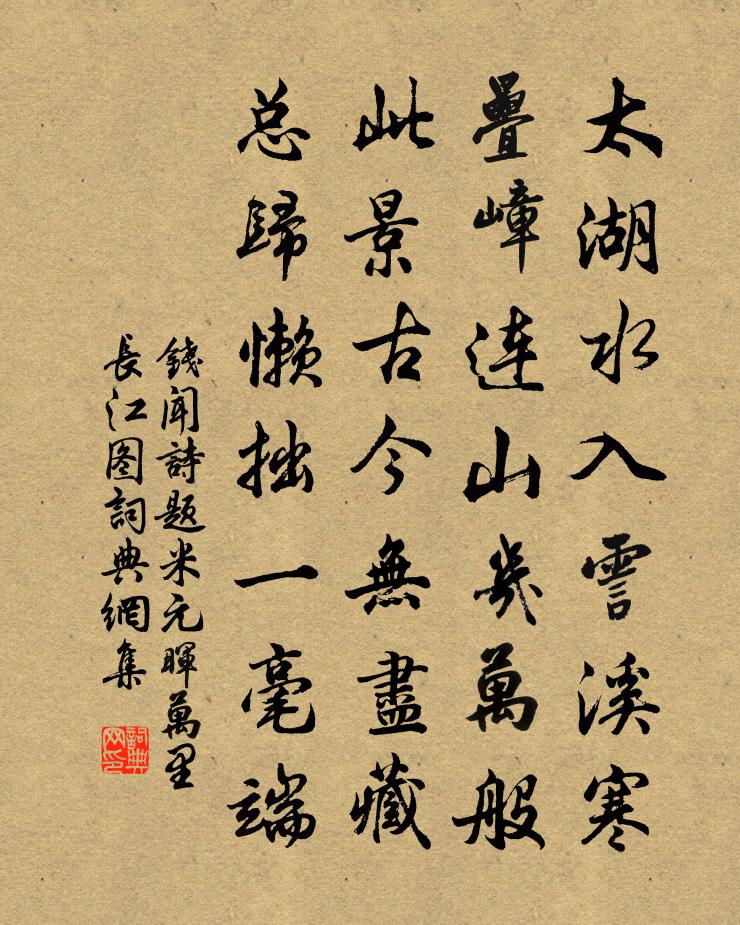 太湖水入霅溪寒
疊嶂連山幾萬般
此景古今無盡藏
总歸懶拙一毫端
錢聞詩題米元暉萬里
長江图詞典網集
詞典
网印